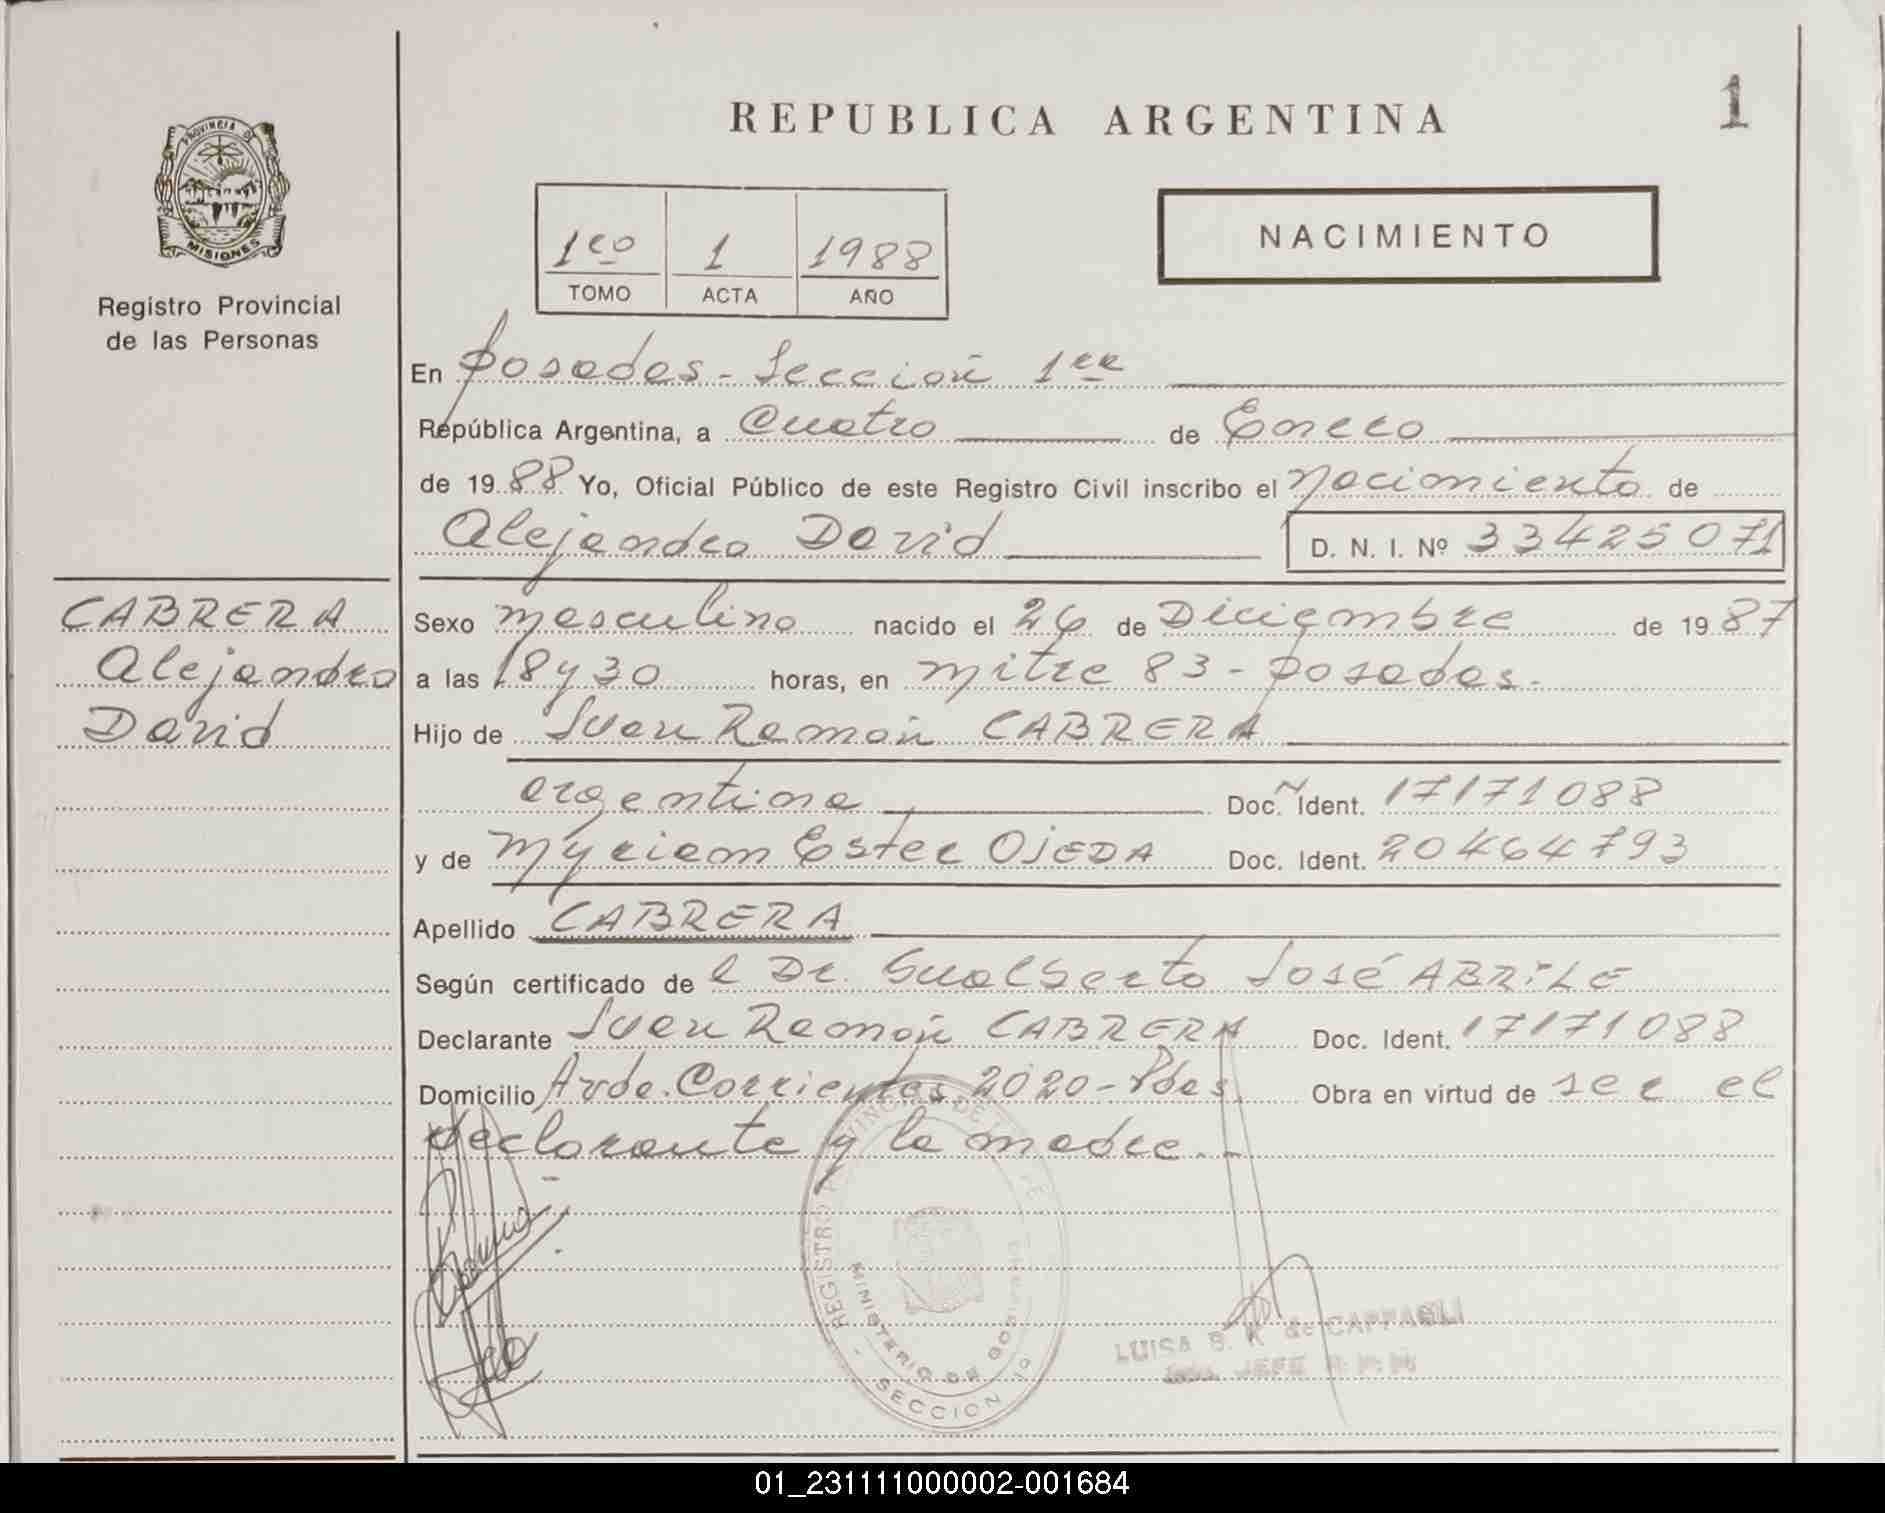 REPUBLICA ARGENTINA
1
PROVINCIA D
MISIONES
Registro Provincial
de las Personas
1ro 1 1988
TOMO ACTA AÑO
NACIMIENTO
En Posadas - Sección 1ra
República Argentina, a Cuatro de Enero
de 1988 Yo, Oficial Público de este Registro Civil inscribo el nacimiento de
Alejandro David D. N. I. Nº 33425071
CABRERA
Alejandro
David
Sexo masculino nacido el 26 de Diciembre de 1987
a las 18 y 30 horas, en mitre 83 - posadas.
Hijo de Juan Ramón CABRERA
argentina Doc. Ident. 17171088
y de Myriam Ester OJEDA Doc. Ident. 20464793
Apellido CABRERA
Según certificado de l Dr. Gualberto José ABRiLE
Declarante Juan Ramón CABRERA Doc. Ident. 17171088
Domicilio Avda. Corrientes 2020 - Pdas. Obra en virtud de ser el
declarante y la madre.-
REGISTRO PROVINCIAL DE L
MINISTERIO DE GOBIERNO
- SECCION 1ª
LUISA B. K de CAPPAGLI
JEFE
01_231111000002-001684